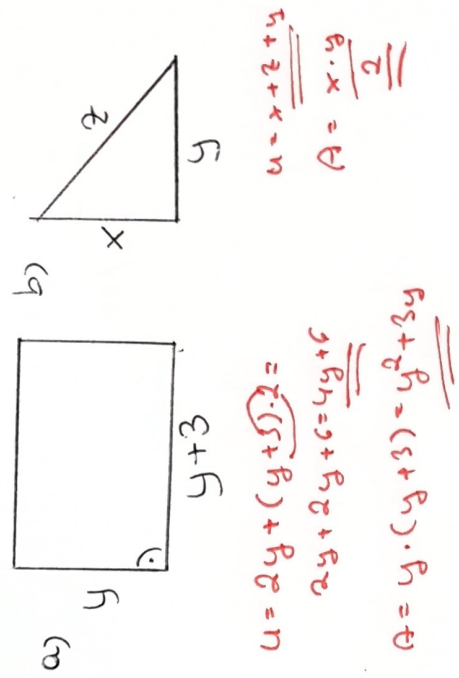 a)
y
y+3
u = 2y + (y+3)·2 =
2y + 2y + 6 = 4y + 6
A = y·(y+3) = y² + 3y
b)
x
z
y
u = x + z + y
A = x·y/2